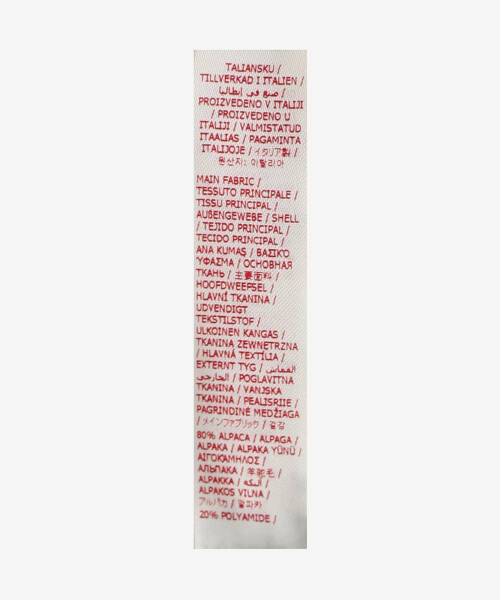 TALIANSKU /
TILLVERKAD I ITALIEN /
صنع في إيطاليا /
PROIZVEDENO V ITALIJI
/ PROIZVEDENO U
ITALIJI / VALMISTATUD
ITAALIAS / PAGAMINTA
ITALIJOJE / イタリア製 /
원산지: 이탈리아
MAIN FABRIC /
TESSUTO PRINCIPALE /
TISSU PRINCIPAL /
AUßENGEWEBE / SHELL
/ TEJIDO PRINCIPAL /
TECIDO PRINCIPAL /
ANA KUMAŞ / ΒΑΣΙΚΌ
ΎΦΑΣΜΑ / ОСНОВНАЯ
ТКАНЬ / 主要面料 /
HOOFDWEEFSEL /
HLAVNÍ TKANINA /
UDVENDIGT
TEKSTILSTOF /
ULKOINEN KANGAS /
TKANINA ZEWNETRZNA
/ HLAVNÁ TEXTÍLIA /
EXTERNT TYG / القماش
الخارجي / POGLAVITNA
TKANINA / VANJSKA
TKANINA / PEALISRIIE /
PAGRINDINĖ MEDŽIAGA
/ メインファブリック / 겉감
80% ALPACA / ALPAGA /
ALPAKA / ALPAKA YÜNÜ /
ΑΙΓΟΚΑΜΗΛΟΣ /
АЛЬПАКА / 羊驼毛 /
ALPAKKA / ألبكة /
ALPAKOS VILNA /
アルパカ / 알파카
20% POLYAMIDE /